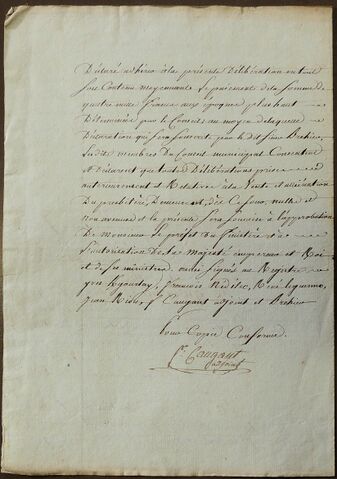 Déclaré adhérer à la présente Délibération en tout
son Contenu moyennant le paiement de la Somme de
quatre mille francs aux époques plus haut
Déterminées par le Conseil au moyen de laquelle
Déclaration qui sera souscrite par le dit sieur
Lesdits membres du Conseil municipal Consentent
et Déclarent que toutes Délibérations prises
antérieurement et Relatives à la Vente et aliénation
Du presbitère, Demeurent, dès Ce jour, nulles et
Non avenues et la présente sera soumise à l'approbation
De Monsieur le préfet du finistère et à
L'autorisation De Sa Majesté empereur et Roi
et de ses ministres. ont signés au Registre
yves françois René
Jean f. Caugant adjoint et
Pour Copie Conforme.
fs. Caugant
adjoint